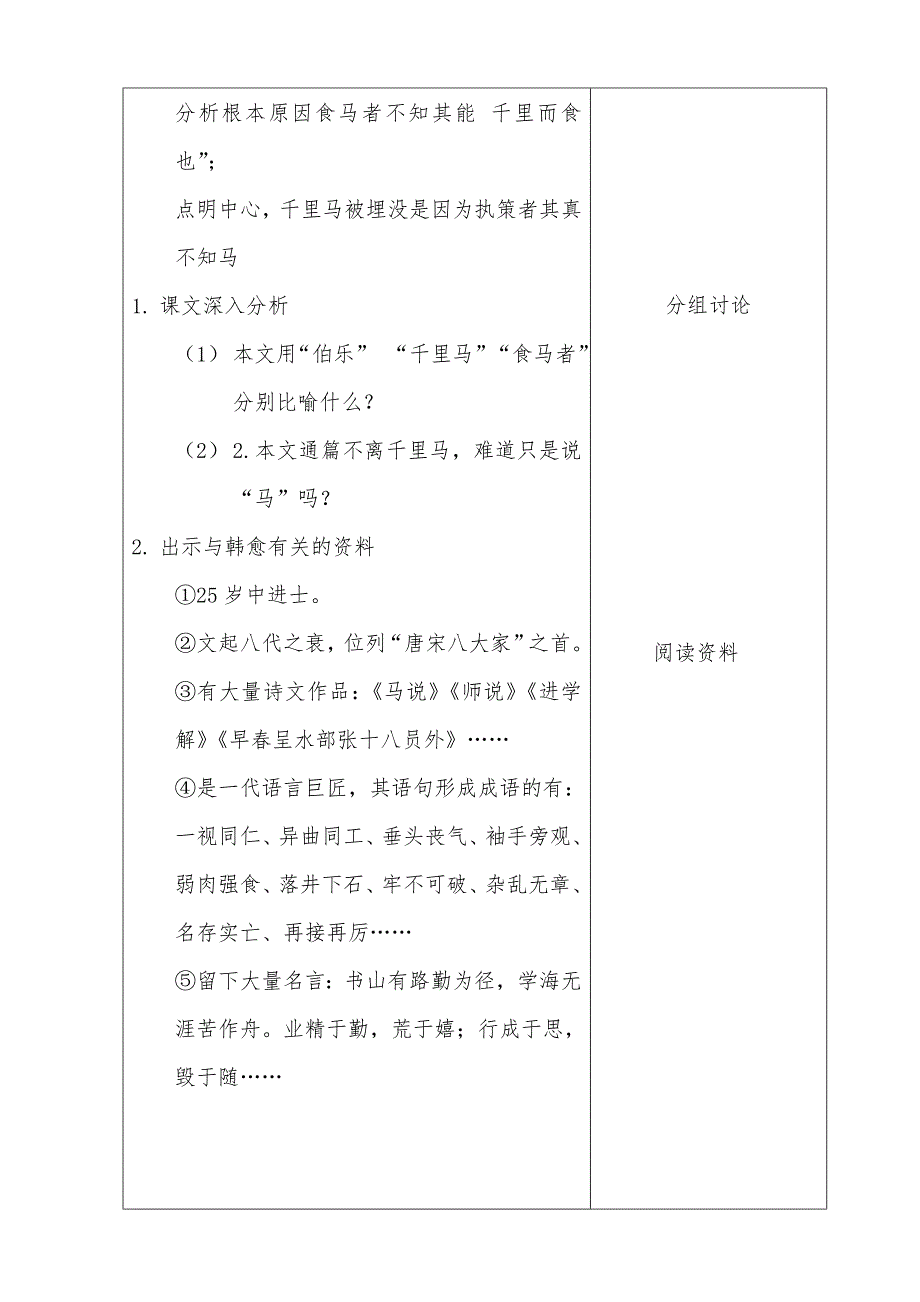 分析根本原因食马者不知其能 千里而食
也”；
点明中心，千里马被埋没是因为执策者其真
不知马
1. 课文深入分析
分组讨论
（1） 本文用“伯乐” “千里马”“食马者”
分别比喻什么？
（2） 2.本文通篇不离千里马，难道只是说
“马”吗？
2. 出示与韩愈有关的资料
①25 岁中进士。
②文起八代之衰，位列“唐宋八大家”之首。
阅读资料
③有大量诗文作品：《马说》《师说》《进学
解》《早春呈水部张十八员外》……
④是一代语言巨匠，其语句形成成语的有：
一视同仁、异曲同工、垂头丧气、袖手旁观、
弱肉强食、落井下石、牢不可破、杂乱无章、
名存实亡、再接再厉……
⑤留下大量名言：书山有路勤为径，学海无
涯苦作舟。业精于勤，荒于嬉；行成于思，
毁于随……